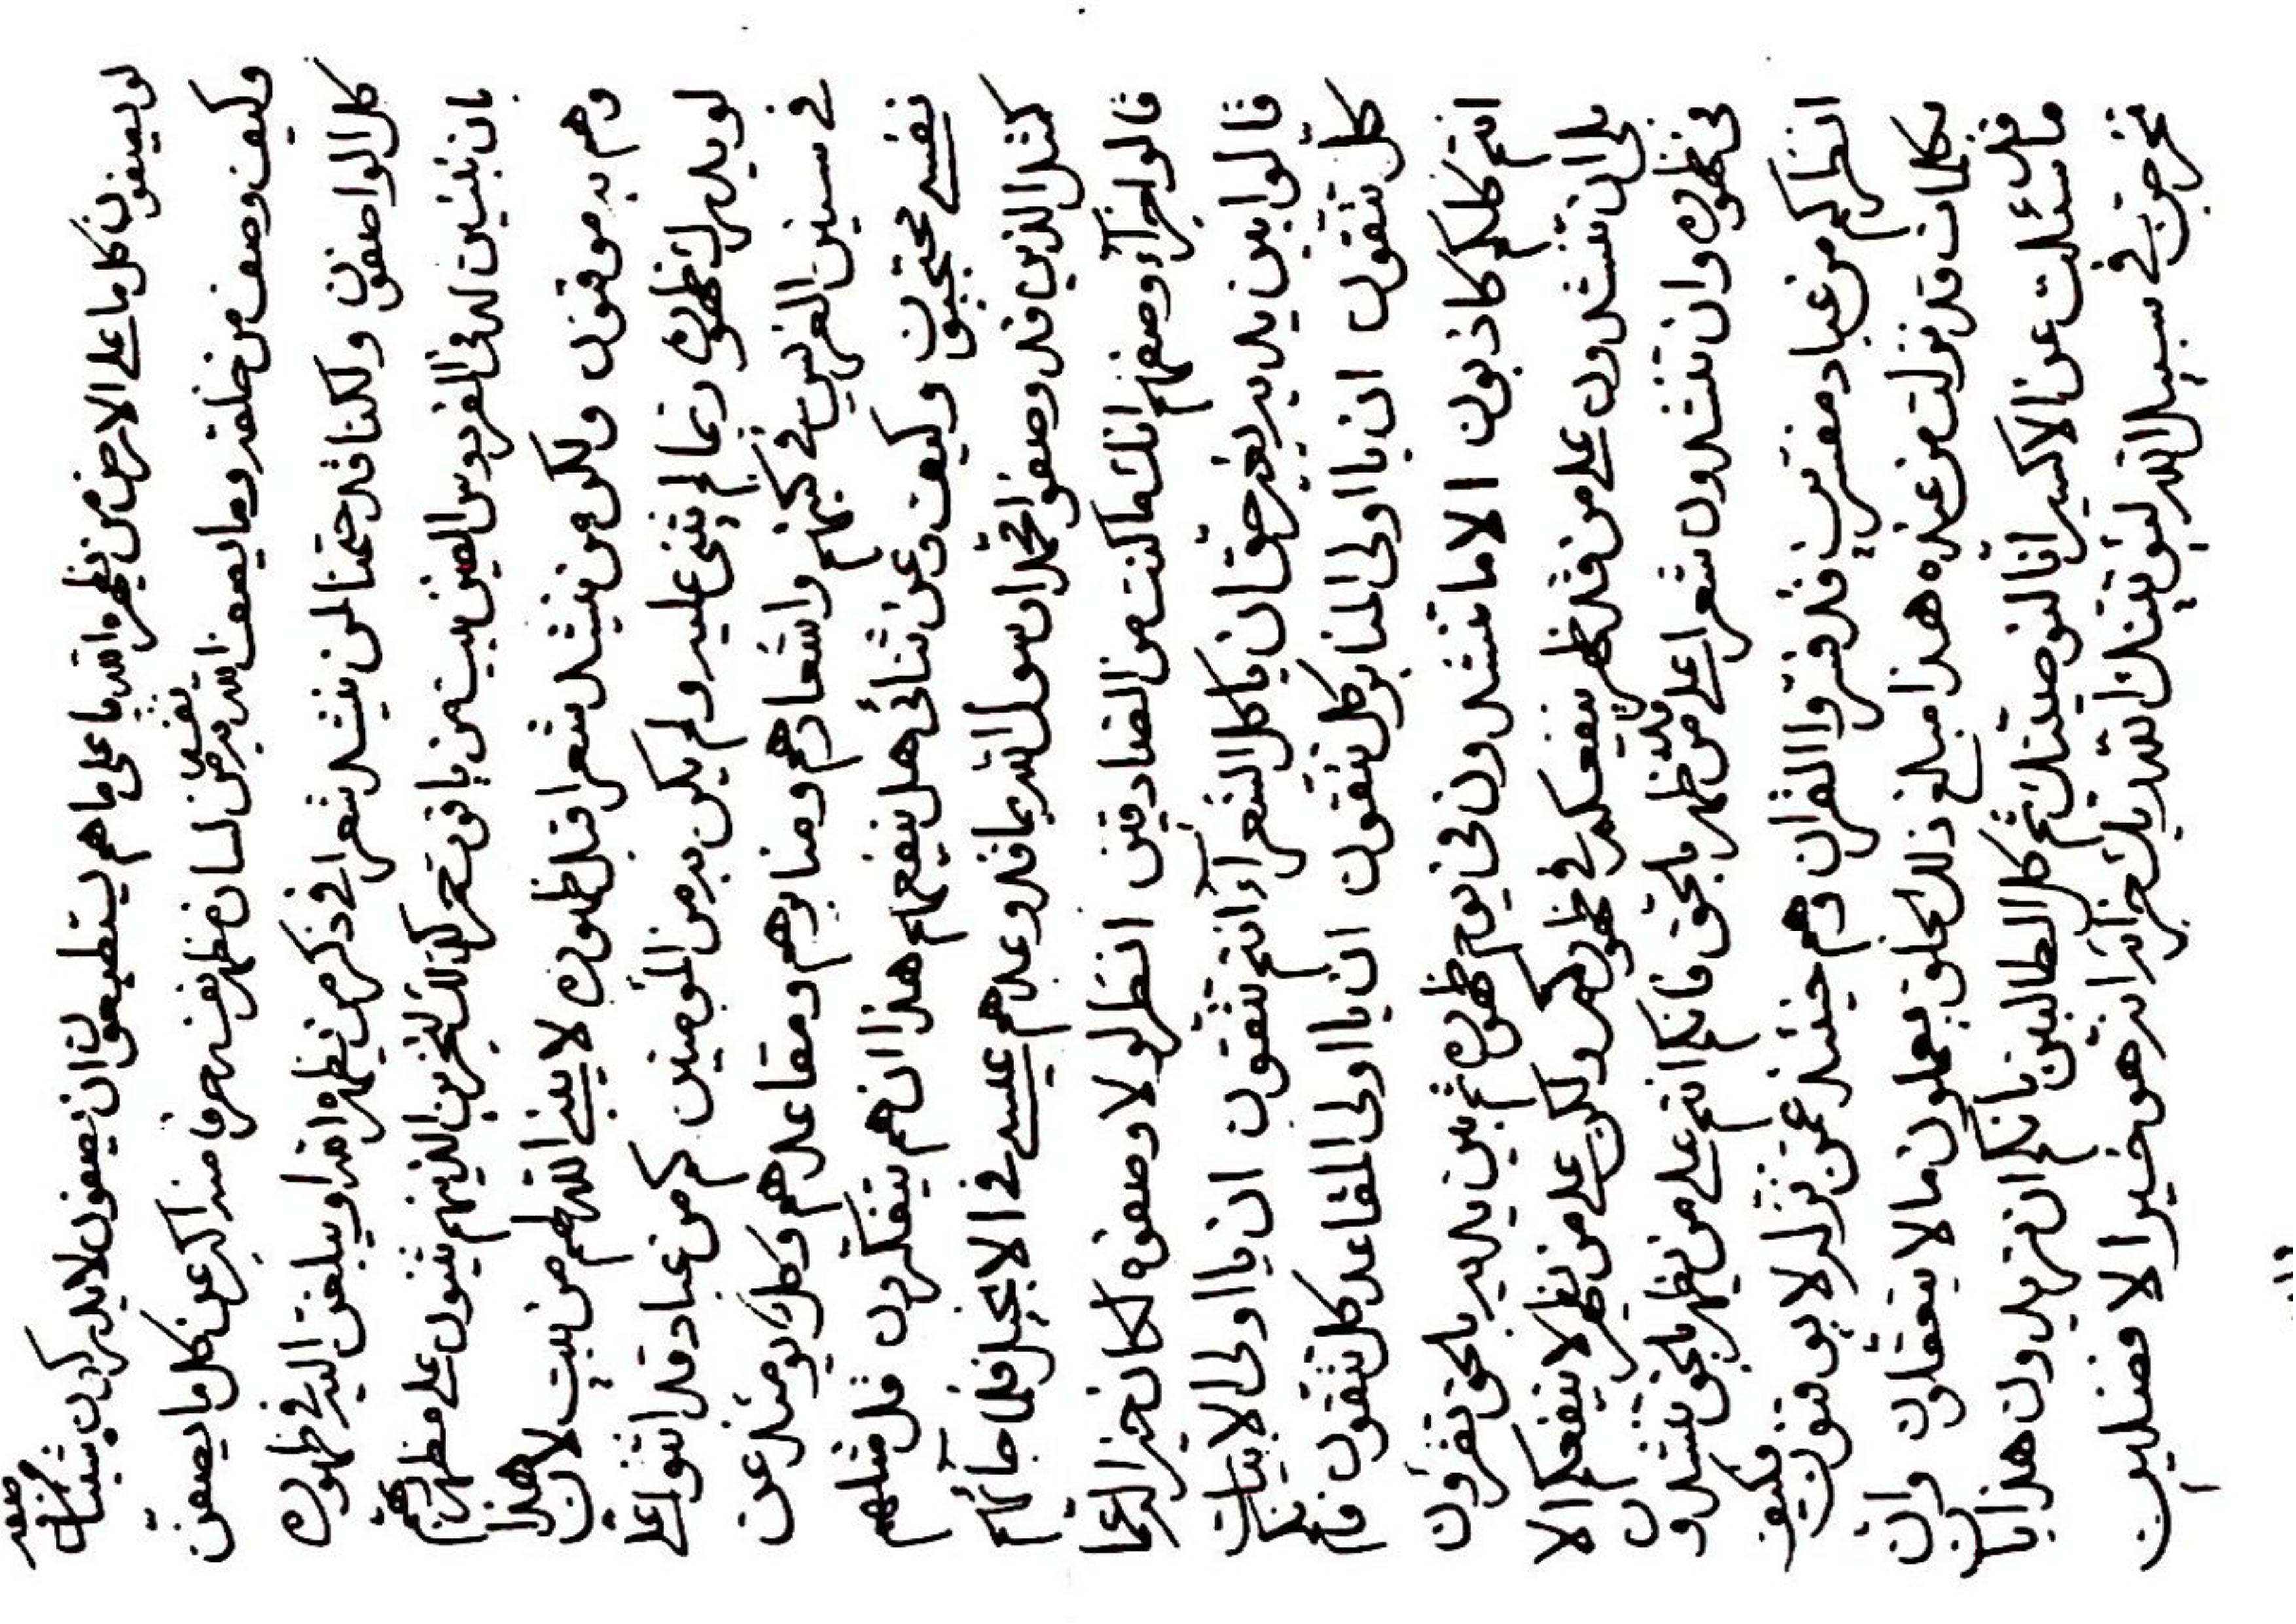 لو يصفون كل ما على الارض من يظهره الله ما على ما هم يستطيعون ان يصفون لا يدركون شيئا من صفته
وكيف وصف من خلقه وما يصف الله به من لسان مظهر نفسه حرفا منه اكبر عن كل ما يصفن
كل الواصفون ولكنا قد حتمنا لمن ينشد شعرا في ذكر من يظهره الله او يبلغن اليه في ظهوره
بان نبنين له في الفردوس العين بيت من ياقوت حمر كذلك لنجزين الذينهم يثنون على مظهر ربهم
وهم به موقنون ولكن من ينشد شعرا قبل ظهوره لا يبن الله لهم من بيت لان هذا
لو يدرك ظهوره ربما لم يثن عليه ولم يكن به من المؤمنين كم من عباد قد اثنوا على
في سنين الفرس في كتبهم واشعارهم ومنابرهم ومقاعدهم وكل يومئذ عن
نفسي محتجبون وكيف وعن ثنائي هل ينفعهم هذا ان هم يتفكرون قل مثلهم
كمثل الذين قد وصفوا محمدا رسول الله بما قد وعدهم عيسى في الانجيل فلما جائهم
قالوا جزآء وصفهم انك ما كنت من الصادقين انظر لولا وصفوه لكان خيرا لهم عما
قالوا بين يديه بغير حق ان يا كل الشعرآء انتم تتقون ان يا اولى الابيات
كل تتقون ان يا اولى المنابر كل تتقون ان يا اولى المقاعد كل تتقون فانكم
انتم كلكم كاذبون الا ما تنشدون في يوم ظهوره ثم بين يديه بالحق تقرؤن
بلى ان تنشدون على من قد ظهر ينفعكم في ظهوركم ولكن على من يظهر لا ينفعكم الا
في ظهوره وان تنشدون شعرا على من قد ظهر بالحق فانكم انتم على من يظهر بالحق تنشدون
انظر كم من عباد مفسرين قد فسروا القران وهم حينئذ عن منزله لا يوقنون فكيف
بكلمات قد نزلت من عنده هذا مبلغ ذلك الخلق يعملون ما لا يتعقلون وان
ما قد سئلت عن الاكسير انا لنوصينك ثم كل الطالبين بانكم ان تريدون هذا بان
تخرجن في سبيل الله ليؤتينك الله ربك خزآئنه انه هو خير الافضلين